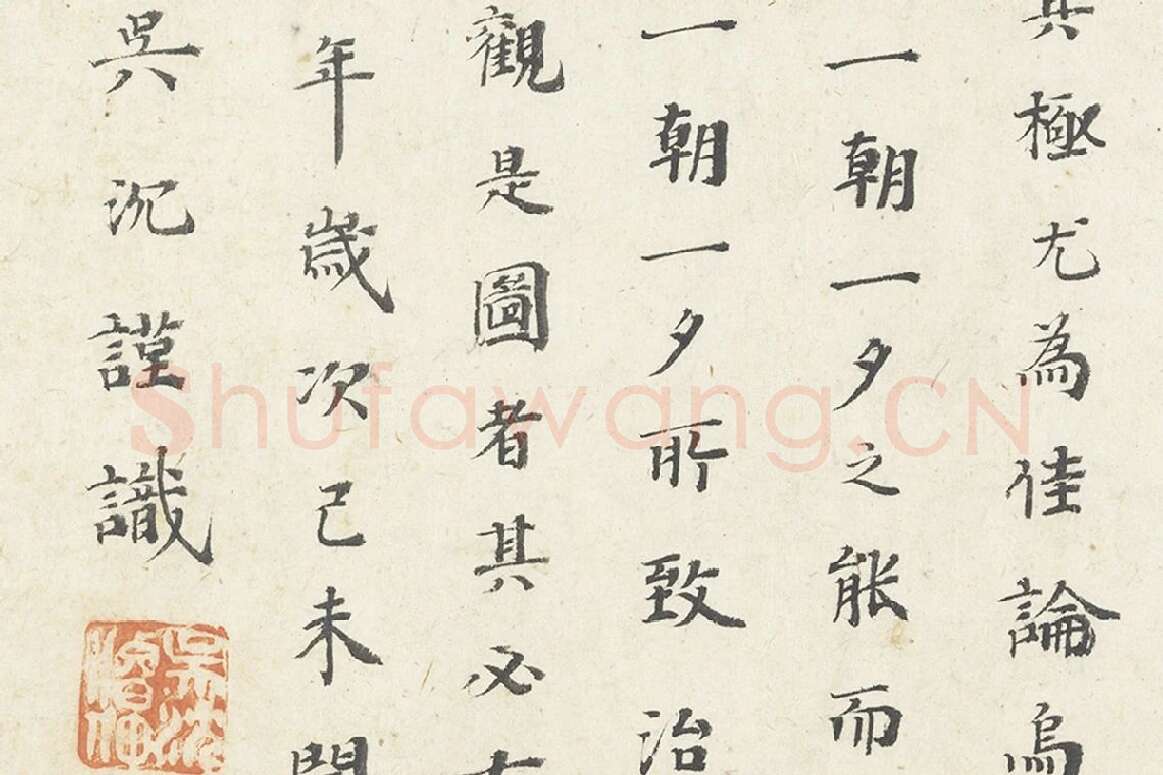 其極尤為佳論烏
一朝一夕之能而
一朝一夕所致治
觀是圖者其必有
年歲次己未閏
吳沉謹識
吳沈
Shufawang.CN